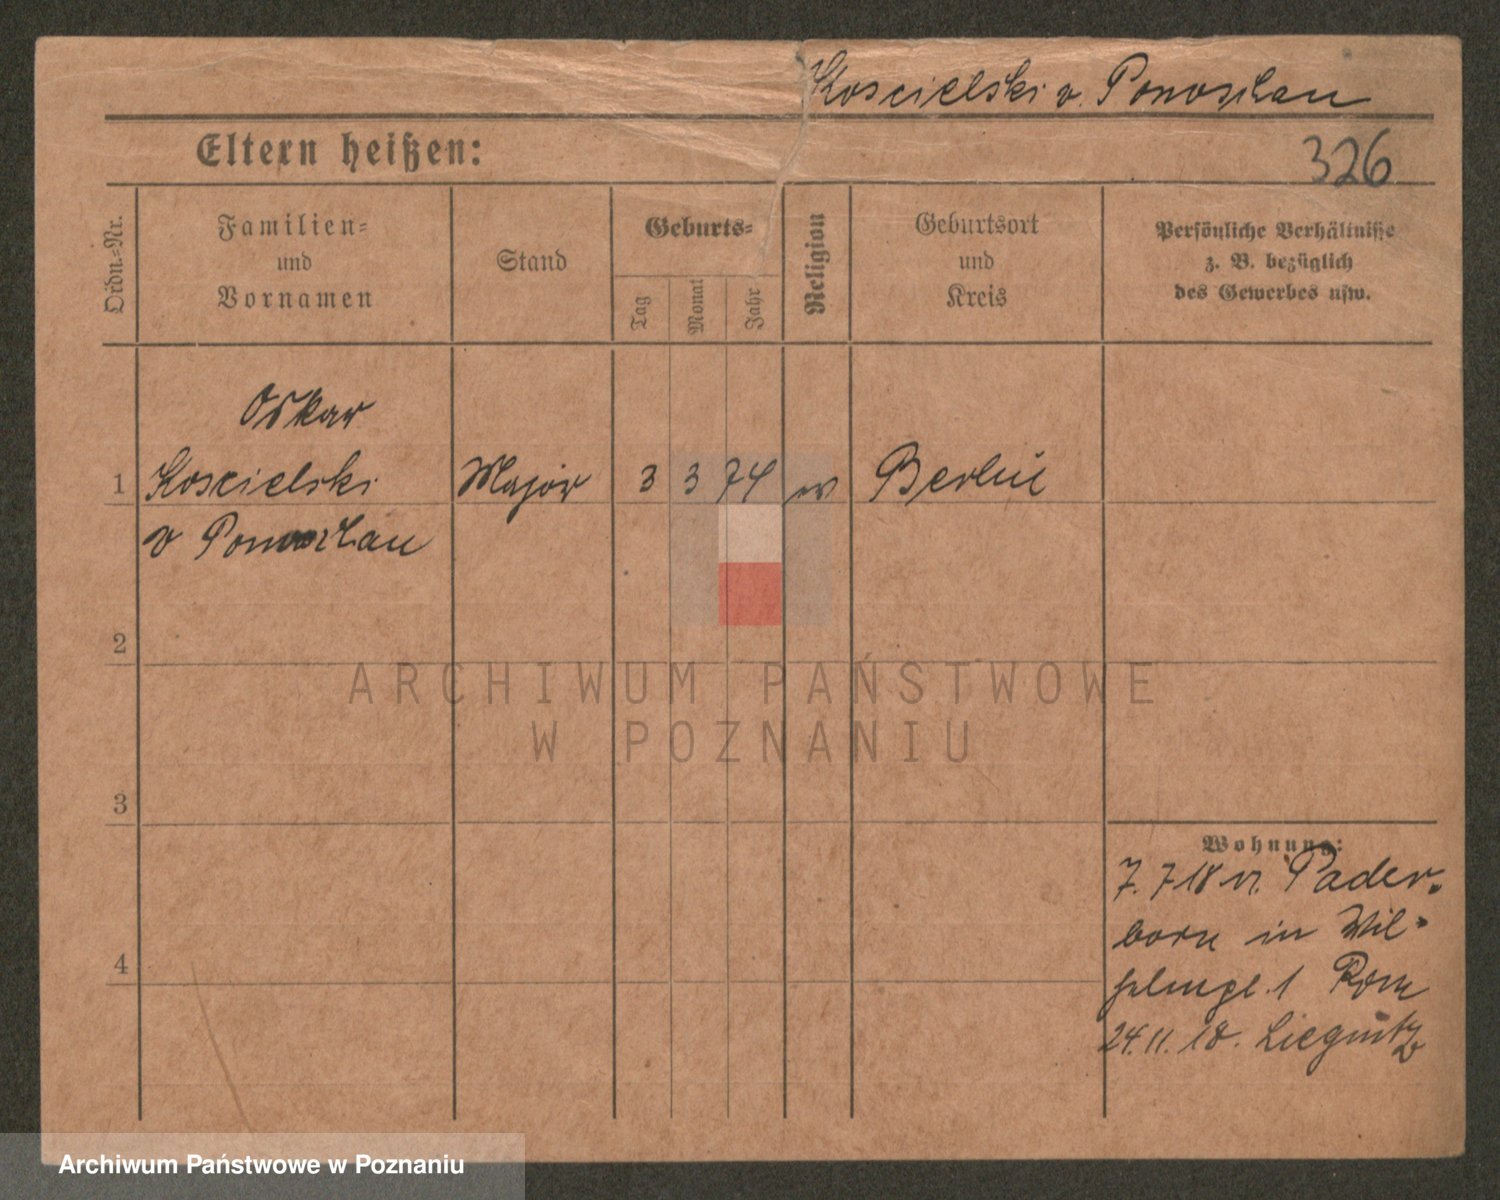 Koscielski v. Ponoschau
Eltern heißen:
326
Ordn.=Nr.
Familien=
und
Vornamen
Stand
Geburts=
Tag
Monat
Jahr
Religion
Geburtsort
und
Kreis
Persönliche Verhältnisse
z. B. bezüglich
des Gewerbes usw.
Oskar
1 Koscielski Major 3 3 74 ev Berlin
v Ponoschau
2
3
4
Wohnung:
7. 7 18 v. Pader-
born in Wil-
helmpl. 1
24. 11. 18. Liegnitz
ARCHIWUM PAŃSTWOWE
W POZNANIU
Archiwum Państwowe w Poznaniu